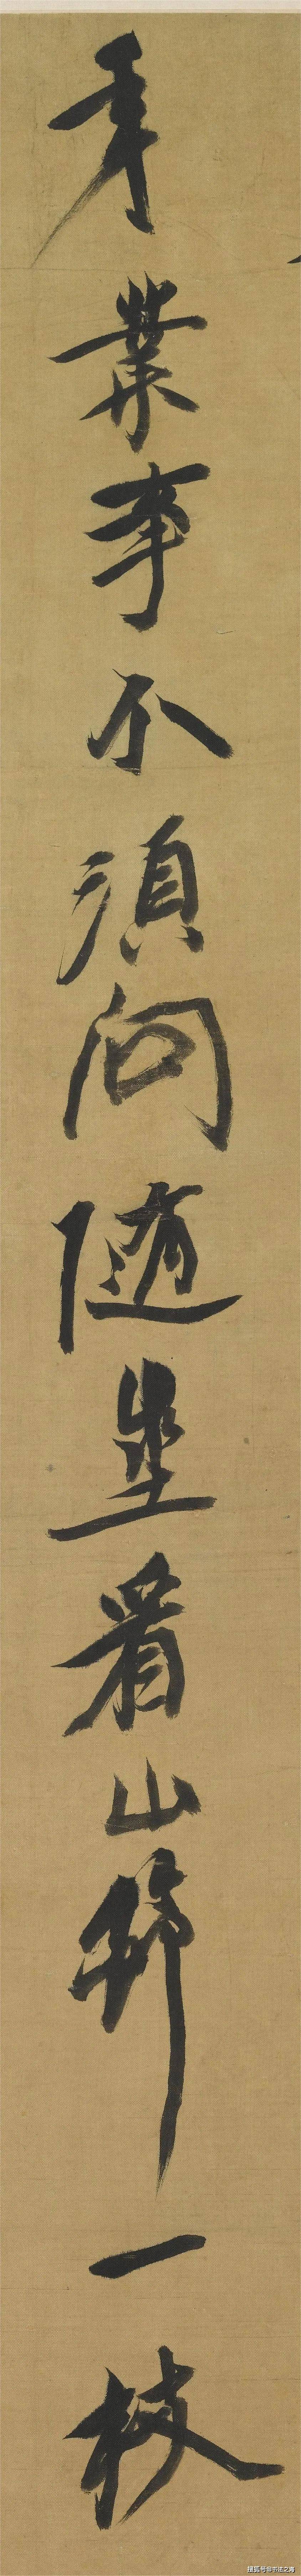 年業事不須問隨坐看山筇一枝
搜狐号@书法之海